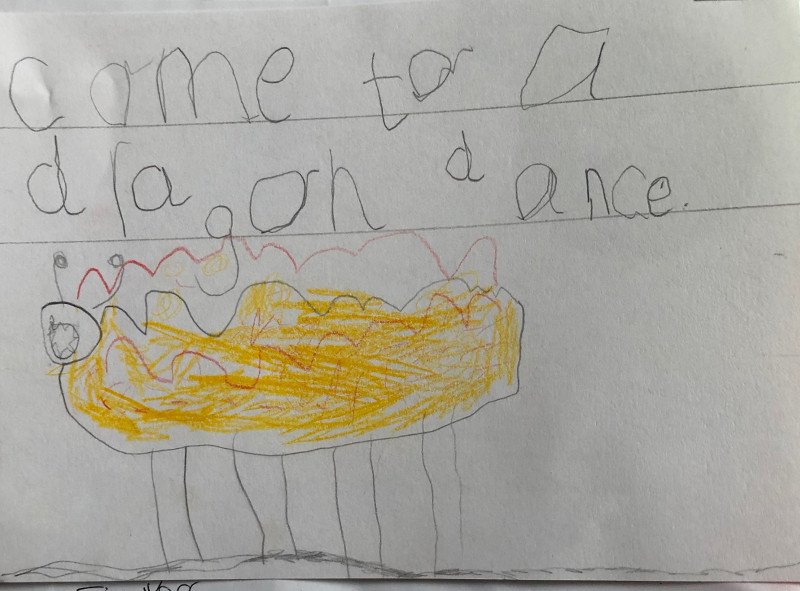 come to a
dragon dance.